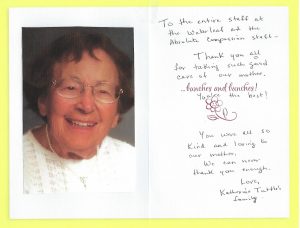 To the entire staff at
the Waterleaf and the
Absolute Compassion staff-
Thank you all
for taking such good
care of our mother.
...bunches and bunches!
You're the best!
You were all so
kind and loving to
our mother,
We can never
thank you enough.
Love,
Katherine Tuttle's
family